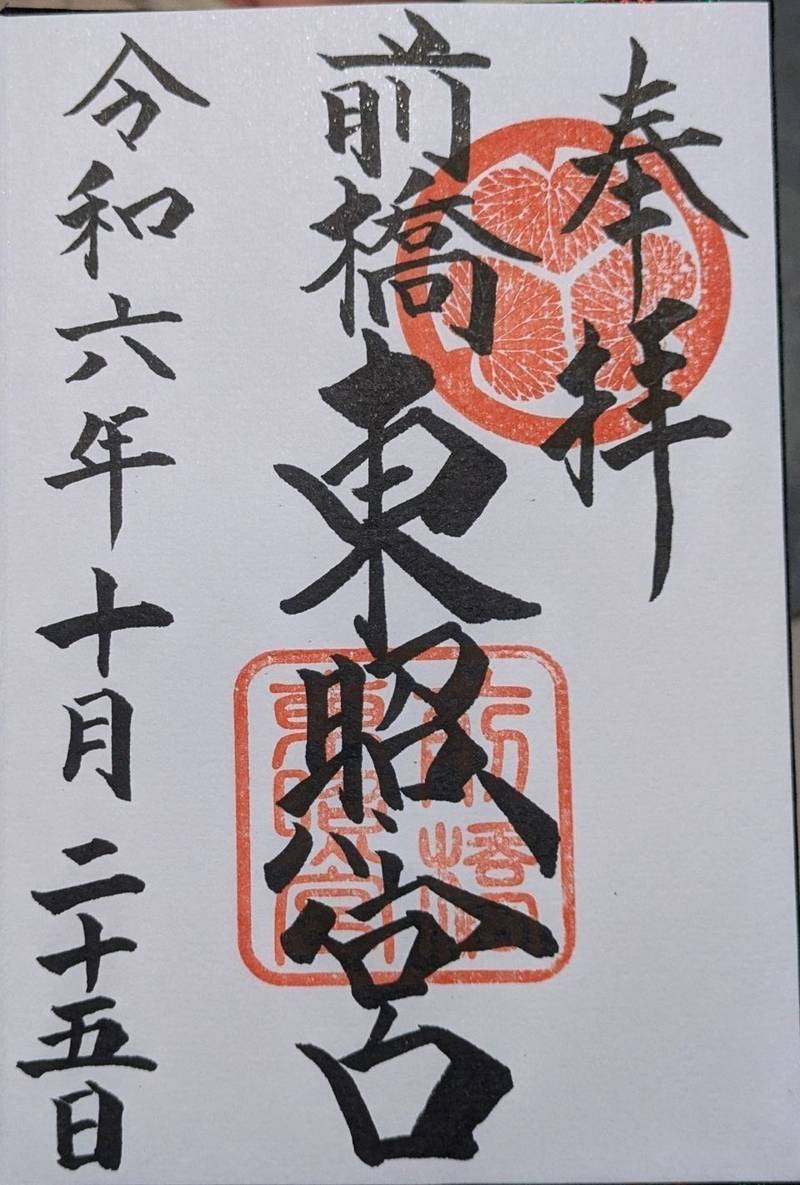 奉拝
前橋東照宮
令和六年十月二十五日
前橋
東照宮